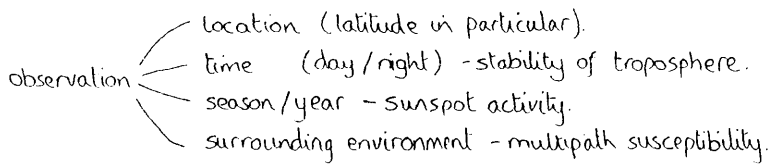 location (latitude in particular).
time (day/night) - stability of troposphere.
observation
season/year - sunspot activity.
surrounding environment - multipath susceptibility.